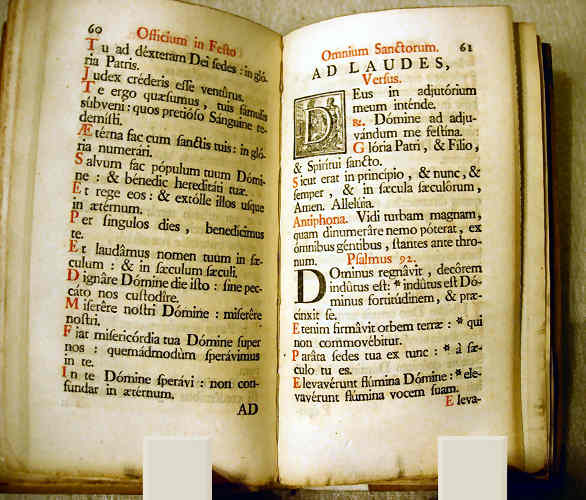 60 Officium in Festo
Tu ad déxteram Dei sedes : in gló-
ria Patris.
Judex créderis esse ventûrus.
Te ergo quæsumus, tuis famulis
súbveni : quos pretióso Sánguine re-
demísti.
Ætérna fac cum sanctis tuis : in gló-
ria numerári.
Salvum fac pópulum tuum Dómi-
ne : & bénedic hereditáti tuæ.
Et rege eos : & extólle illos usque
in ætérnum.
Per síngulos dies , benedícimus
te.
Et laudâmus nomen tuum in sæ-
culum : & in sæculum sæculi.
Dignâre Dómine die isto : sine pec-
cáto nos custodíre.
Miserêre nostri Dómine : miserêre
nostri.
Fiat misericórdia tua Dómine super
nos : quemádmodùm sperávimus
in te.
In te Dómine sperávi : non con-
fundar in ætérnum.
AD
Omnium Sanctorum. 61
AD LAUDES,
Versus.
DEus in adjutórium
meum inténde.
℞. Dómine ad adju-
vándum me festína.
Glória Patri, & Fílio,
& Spirítui sancto.
Sicut erat in princípio , & nunc, &
semper , & in sæcula sæculórum,
Amen. Allelúia.
Antiphona. Vidi turbam magnam,
quam dinumeráre nemo póterat, ex
ómnibus géntibus, stantes ante thro-
num.
Psalmus 92.
DOminus regnâvit , decôrem
indûtus est: * indûtus est Dó-
minus fortitúdinem, & præ-
cínxit se.
Etenim firmâvit orbem terræ : * qui
non commovébitur.
Parâta sedes tua ex tunc : * à sæ-
culo tu es.
Elevavérunt flúmina Dómine : * ele-
vavérunt flúmina vocem suam.
Eleva-